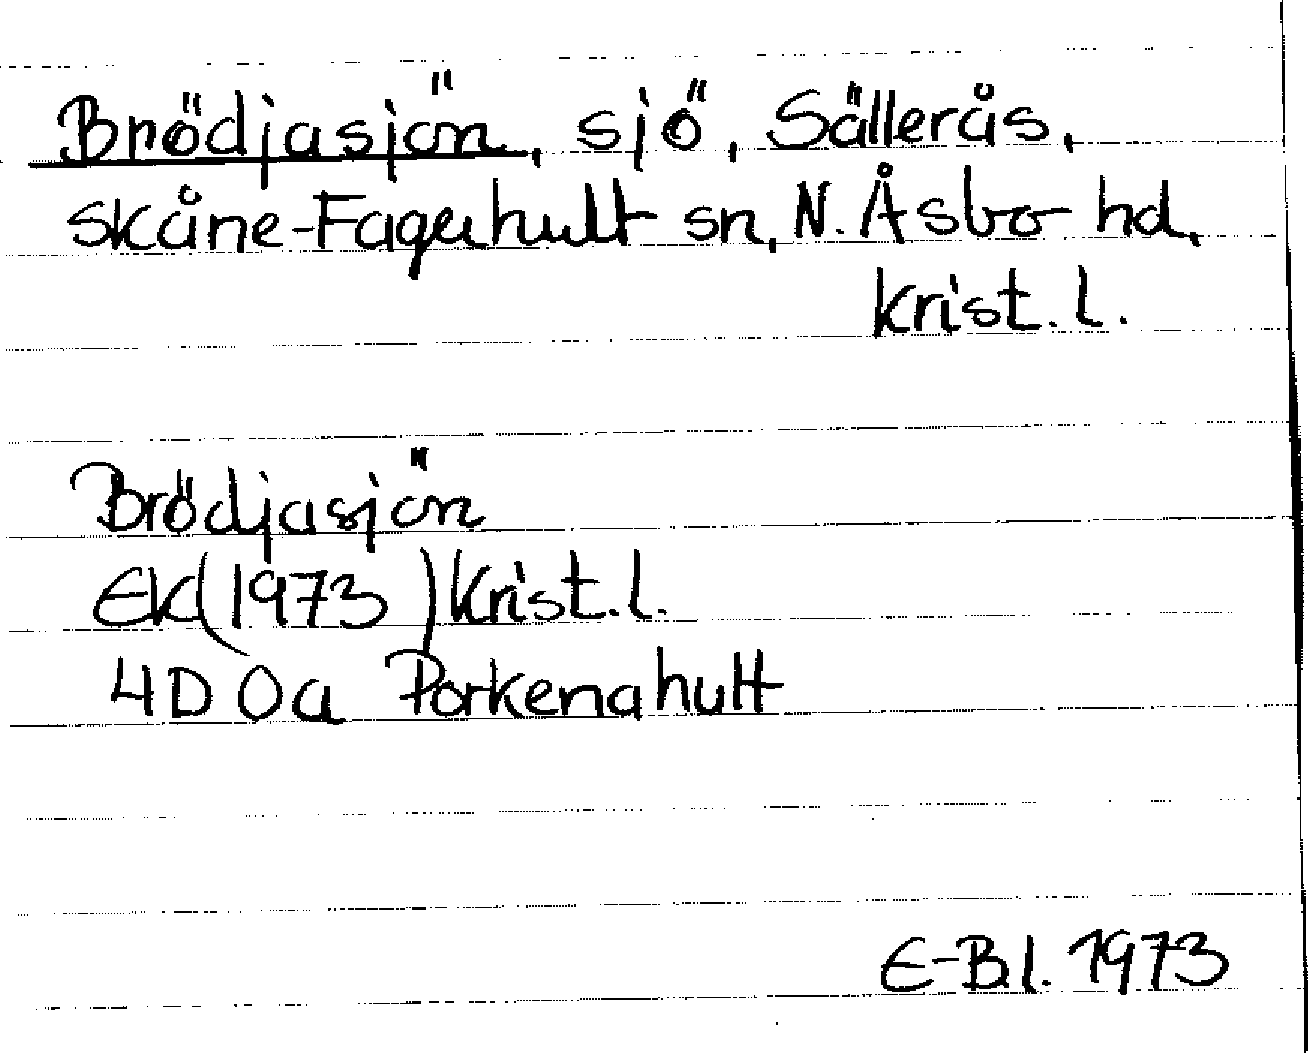 Brödjasjön, sjö, Sällerås,
skåne-Fagerhult sn, N. Åsbo hd,
krist. l.
Brödjasjön
EK(1973) Krist. l.
4D 0a Porkenahult
E-B.l. 1973